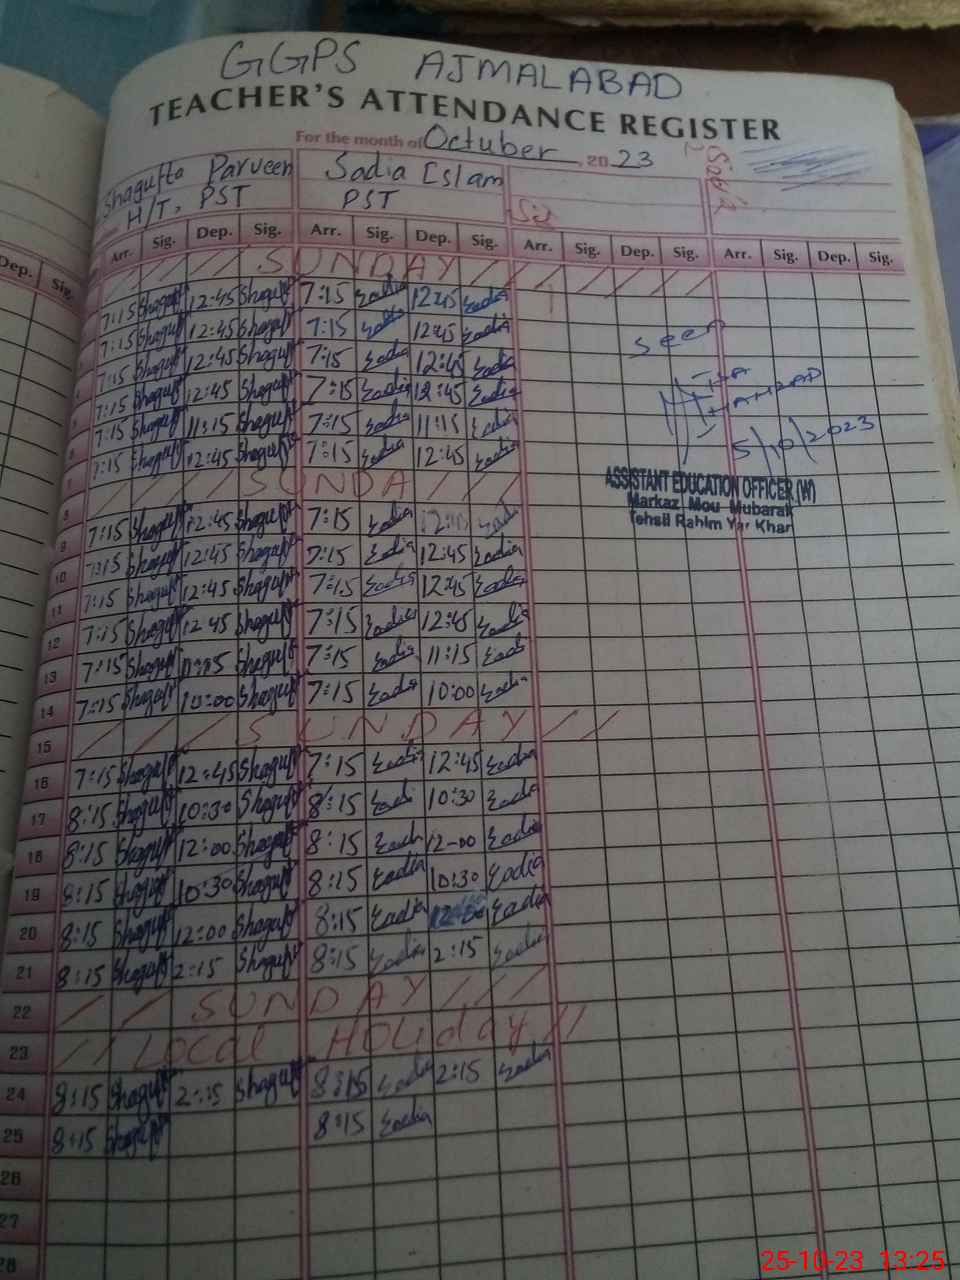 GGPS AJMALABAD
TEACHER'S ATTENDANCE REGISTER
For the month of Octuber, 20 23
Shagufta Parveen Sadia Islam
H/T, PST PST
Dep. Sig. Arr. Sig. Dep. Sig. Arr. Sig. Dep. Sig. Arr. Sig. Dep. Sig. Arr. Sig. Dep. Sig.
SUNDAY
7:15 Shagufta 12:45 Shagufta 7:15 Sadia 12:45 Sadia
7:15 Shagufta 12:45 Shagufta 7:15 Sadia 12:45 Sadia
7:15 Shagufta 12:45 Shagufta 7:15 Sadia 12:45 Sadia
7:15 Shagufta 12:45 Shagufta 7:15 Sadia 12:45 Sadia
7:15 Shagufta 11:15 Shagufta 7:15 Sadia 11:15 Sadia
7:15 Shagufta 12:45 Shagufta 7:15 Sadia 12:45 Sadia
seen
5/10/2023
ASSISTANT EDUCATION OFFICER (W)
Markaz Mou Mubarak
Tehsil Rahim Yar Khan
8 SUNDA
9 7:15 Shagufta 12:45 Shagufta 7:15 Sadia Sadia
10 7:15 Shagufta 12:45 Shagufta 7:15 Sadia 12:45 Sadia
11 7:15 Shagufta 12:45 Shagufta 7:15 Sadia 12:45 Sadia
12 7:15 Shagufta 12:45 Shagufta 7:15 Sadia 12:45 Sadia
13 7:15 Shagufta 11:15 Shagufta 7:15 Sadia 11:15 Sadia
14 7:15 Shagufta 10:00 Shagufta 7:15 Sadia 10:00 Sadia
15 SUNDAY
16 7:15 Shagufta 12:45 Shagufta 7:15 Sadia 12:45 Sadia
17 8:15 Shagufta 10:30 Shagufta 8:15 Sadia 10:30 Sadia
18 8:15 Shagufta 12:00 Shagufta 8:15 Sadia 12-00 Sadia
19 8:15 Shagufta 10:30 Shagufta 8:15 Sadia 10:30 Sadia
20 8:15 Shagufta 12:00 Shagufta 8:15 Sadia Sadia
21 8:15 Shagufta 2:15 Shagufta 8:15 Sadia 2:15 Sadia
22 SUNDAY
23 Local Holiday
24 8:15 Shagufta 2:15 Shagufta 8:15 Sadia 2:15 Sadia
25 8:15 Shagufta 8:15 Sadia
26
27
28
25-10-23 13:25